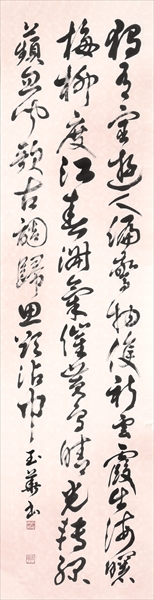 獨有宦遊人偏驚物候新雲霞出海曙
梅柳度江春淑氣催黃鳥晴光轉綠
蘋忽聞歌古調歸思欲沾巾 玉華書